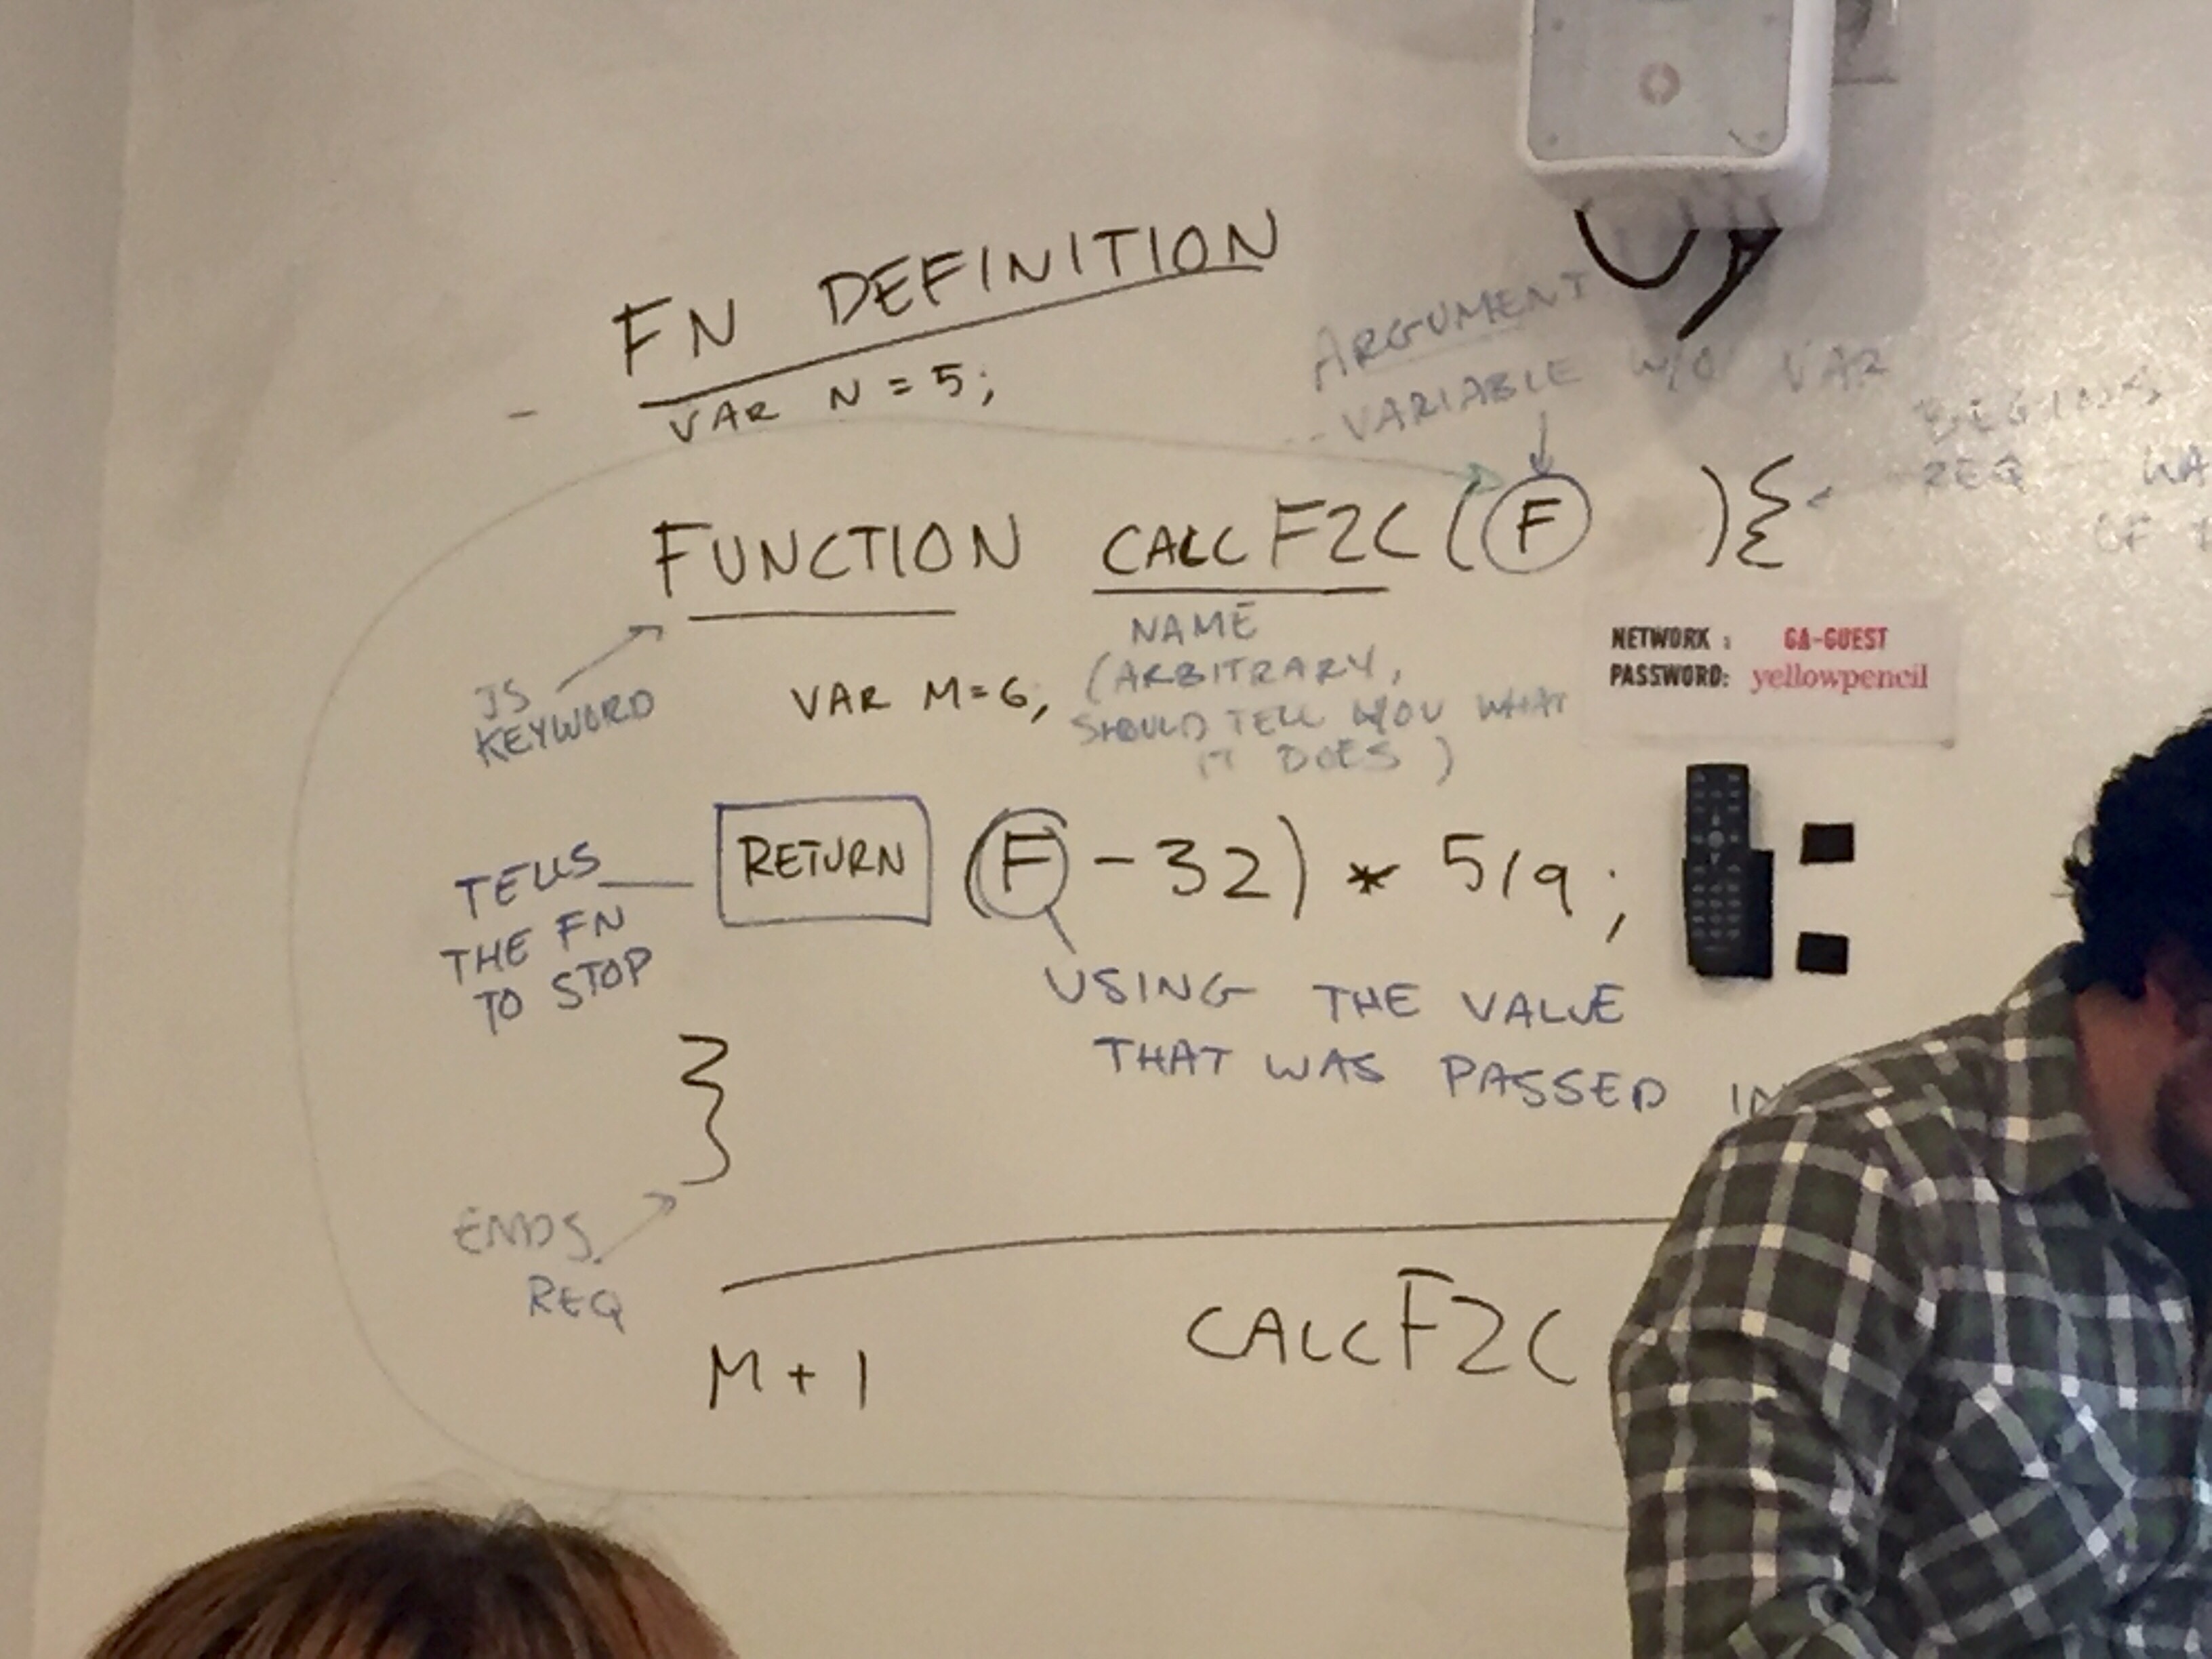 FN DEFINITION
VAR N = 5;
ARGUMENT
- VARIABLE W/O VAR
BEGINS
REQ
FUNCTION CALCF2C (F ){
JS
KEYWORD
NAME
(ARBITRARY,
SHOULD TELL YOU WHAT
IT DOES)
VAR M=6,
NETWORK : GA-GUEST
PASSWORD: yellowpencil
TELLS
THE FN
TO STOP
RETURN (F - 32) * 5/9 ;
USING THE VALUE
THAT WAS PASSED IN
}
ENDS
REQ
M + 1
CALCF2C